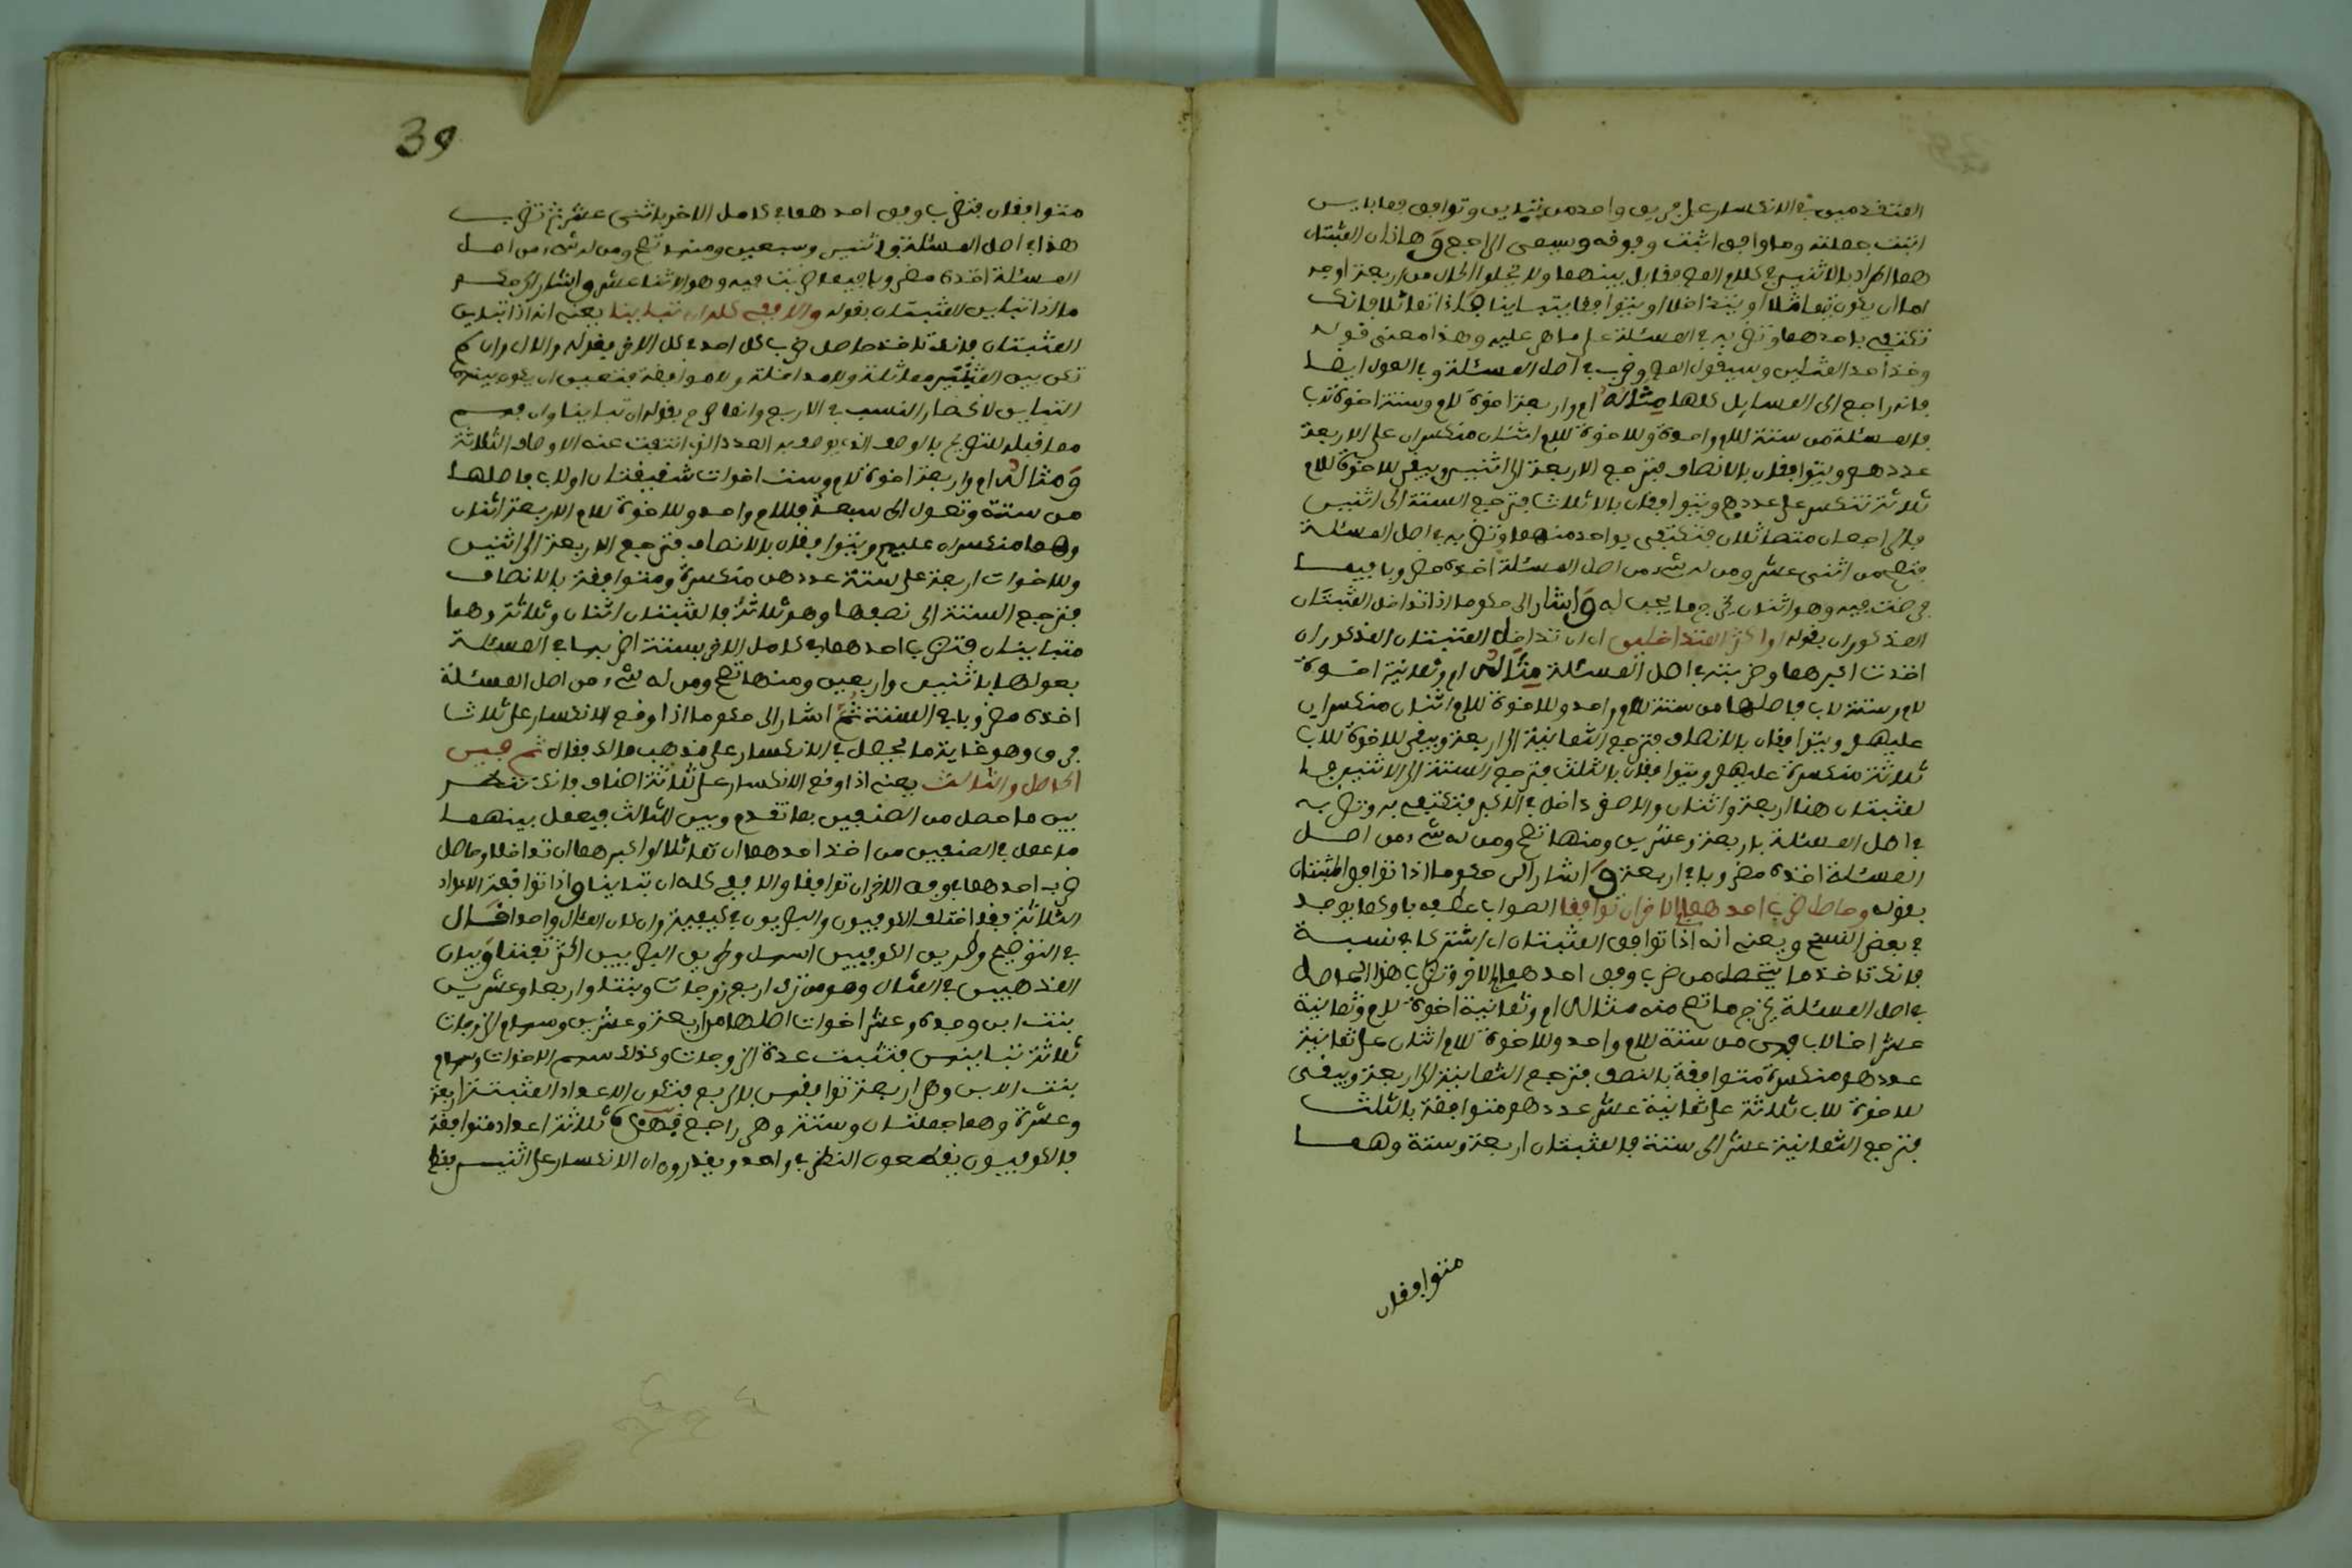 المتقدمين في الانكسار على فريق واحد من تباين وتوافق فما باين
اثبت جملته وما وافق اثبت وفقه ويسمى الراجع وهاذان المثبتان
هما المراد بالاثنين في كلام المص فقابل بينهما ولا يخلوا الحال من اربعة اوجه
اما ان يكون تماثلا او يتداخلا او يتوافقا او يتباينا فاذا تماثلا فانك
تكتفي باحدهما وتضربه في المسئلة على ما مر عليه وهذا معنى قوله
وخذ احد المثلين وسيقول المص وضرب في اصل المسئلة وفي العول ايضا
فانه راجع الى المسايل كلها مثاله ام واربعة اخوة لام وستة اخوة لاب
فالمسئلة من ستة للام واحد وللاخوة للام اثنان منكسران على الاربعة
عددهم ويتوافقان بالانصاف فترجع الاربعة الى اثنين ويبقى للاخوة للاب
ثلاثة تنكسر على عددهم ويتوافقان بالاثلاث فترجع الستة الى اثنين
فالراجعان متماثلان فتكتفي بواحد منهما وتضربه في اصل المسئلة
فتصح من اثنى عشر ومن له شيء من اصل المسئلة اخذه مضروبا فيما
ضربت فيه وهو اثنان يخرج ما يجب له واشار الى حكم ما اذا تداخل المثبتان
المذكوران بقوله او اكثر المتداخلين اى ان تداخل المثبتان المذكوران
اخذت اكبرهما وضربته في اصل المسئلة مثاله ام وثمانية اخوة
لام وستة لاب فاصلها من ستة للام واحد وللاخوة للام اثنان منكسران
عليهم ويتوافقان بالانصاف فترجع الثمانية الى اربعة ويبقى للاخوة للاب
ثلاثة منكسرة عليهم ويتوافقان بالثلث فترجع الستة الى الاثنين فا
لمثبتان هنا اربعة واثنان والاصغر داخل في الاكبر فتكتفي به وتضربه
في اصل المسئلة باربعة وعشرين ومنها تصح ومن له شيء من اصل
المسئلة اخذه مضروبا في اربعة واشار الى حكم ما اذا توافق المثبتان
بقوله وحاصل ضرب احدهما في الاخر ان توافقا الصواب عطفه باو كما يوجد
في بعض النسخ ويعني انه اذا توافق المثبتان اى اشتركا في نسبة
فانك تاخذ ما يتحصل من ضرب وفق احدهما في الاخر وتضرب هذا الحاصل
في اصل المسئلة يخرج ما تصح منه مثاله ام وثمانية اخوة لام وثمانية
عشر اخا لاب فهي من ستة للام واحد وللاخوة للام اثنان على ثمانية
عددهم منكسرة متوافقة بالنصف فترجع الثمانية الى اربعة ويبقى
للاخوة للاب ثلاثة على ثمانية عشر عددهم متوافقة بالثلث
فترجع الثمانية عشر الى ستة فالمثبتان اربعة وستة وهما
متوافقان
39
متوافقان فتضرب وفق احدهما في كامل الاخر باثنى عشر ثم تضرب
هذا في اصل المسئلة باثنين وسبعين ومنه تصح ومن له شيء من اصل
المسئلة اخذه مضروبا فيما ضربت فيه وهو الاثنا عشر واشار الى حكم
ما اذا تباين المثبتان بقوله والا ففي كله ان تباينا يعني انه اذا تباين
المثبتان فانك تاخذ حاصل ضرب كل احد في كل الاخر فقوله والا اى وان لم
تكن بين المثبتين مماثلة ولا مداخلة ولا موافقة فتعين ان يكون بينهما
التباين لانحصار النسب في الاربع وانما صرح بقوله ان تباينا وان فهم
مما قبله للتصريح بالوصف الذي يوصف به العدد الذي انتفت عنه الاوصاف الثلاثة
ومثاله ام واربعة اخوة لام وست اخوات شقيقتان او لاب فاصلها
من ستة وتعول الى سبعة فللام واحد وللاخوة للام الاربعة اثنان
وهما منكسران عليهم ويتوافقان بالانصاف فترجع الاربعة الى اثنين
وللاخوات اربعة على ستة عددهن منكسرة ومتوافقة بالانصاف
فترجع الستة الى نصفها وهو ثلاثة فالمثبتان اثنان وثلاثة وهما
متباينان فتضرب احدهما في كامل الاخر بستة اضربها في المسئلة
بعولها باثنين واربعين ومنها تصح ومن له شيء من اصل المسئلة
اخذه مضروبا في الستة ثم اشار الى حكم ما اذا وقع الانكسار على ثلاث
فرق وهو غاية ما يحصل في الانكسار على مذهب مالك فقال ثم بين
الحاصل والثالث يعني اذا وقع الانكسار على ثلاثة اصناف فانك تنظر
بين ما حصل من الصنفين بما تقدم وبين الثالث فيعمل بينهما
ما عمل في الصنفين من اخذ احدهما ان تماثلا او اكبرهما ان تداخلا وحاصل
ضرب احدهما في وفق الاخر ان توافقا والا ففي كله ان تباينا واذا توافقت الاعداد
الثلاثة فقد اختلف الكوفيون والبصريون في كيفية وان كان المئال واحدا قال
في التوضيح وطريق الكوفيين اسهل وطريق البصريين اكثر تفننا وبيان
المذهبين في المثال وهو من ترك اربع زوجات وبنتا واربعا وعشرين
بنت ابن وجدة وعشر اخوات اصلها من اربعة وعشرين وسهام الزوجات
ثلاثة تباينهن فتثبت عدة الزوجات وكذلك سهم الاخوات وسهام
بنت الابن وهي اربعة توافقهن بالربع فتكون الاعداد المثبتة اربعة
وعشرة وهما جملتان وستة وهي راجع فهي ثلاثة اعداد متوافقة
فالكوفيون يقطعون النظر في واحد ويقدرون ان الانكسار على اثنين فقط